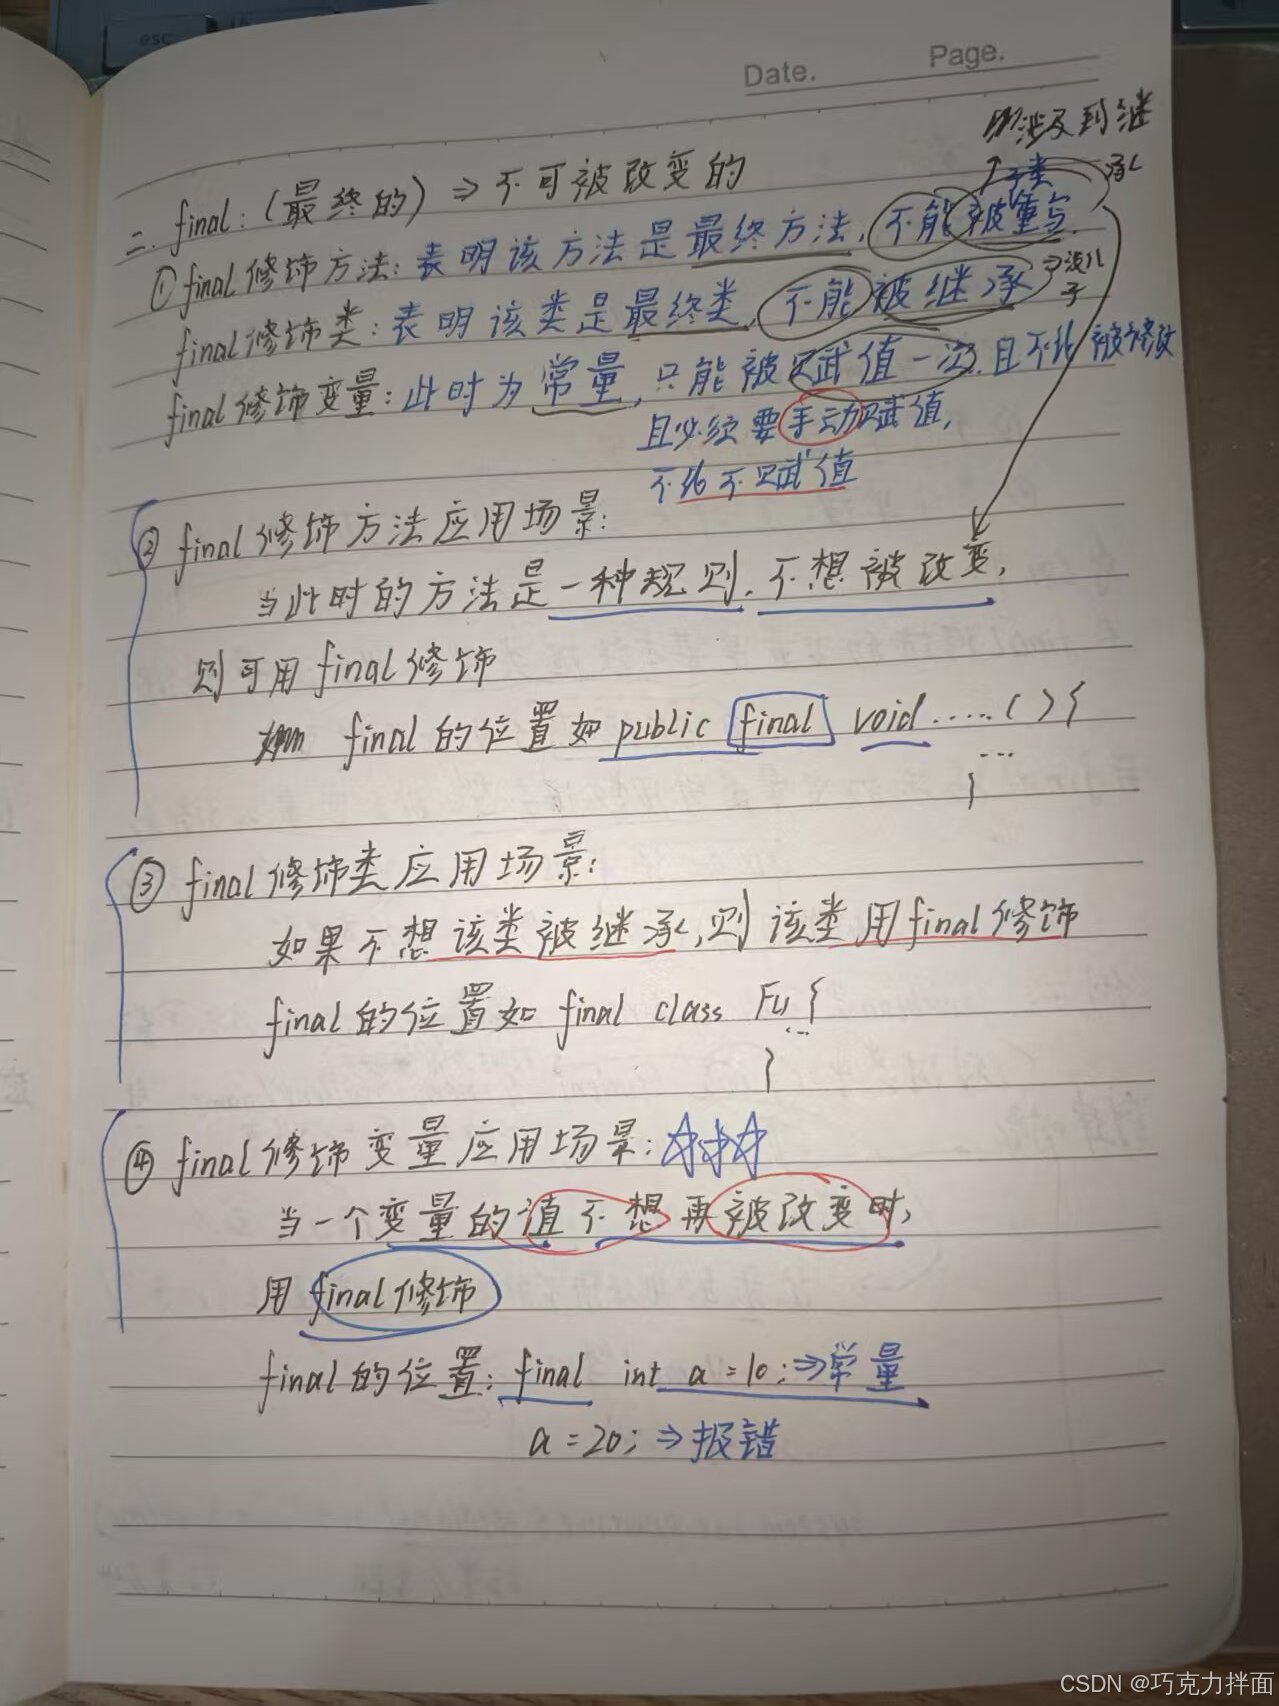 esc
Date. Page.
涉及到继承
二. final:(最终的) ⇒ 不可被改变的
子类
① final修饰方法: 表明该方法是最终方法, 不能被重写.
final修饰类: 表明该类是最终类, 不能被继承 ⇒没儿子
final修饰变量: 此时为常量, 只能被赋值一次. 且不能被修改
且必须要手动赋值,
不能不赋值
② final修饰方法应用场景:
当此时的方法是一种规则. 不想被改变,
则可用final修饰
final的位置如public final void.....(){
...
}
③ final修饰类应用场景:
如果不想该类被继承, 则该类用final修饰
final的位置如 final class Fu{
...
}
④ final修饰变量应用场景: ☆☆☆
当一个变量的值不想再被改变时,
用final修饰
final的位置: final int a=10; ⇒常量
a=20; ⇒报错
CSDN @巧克力拌面